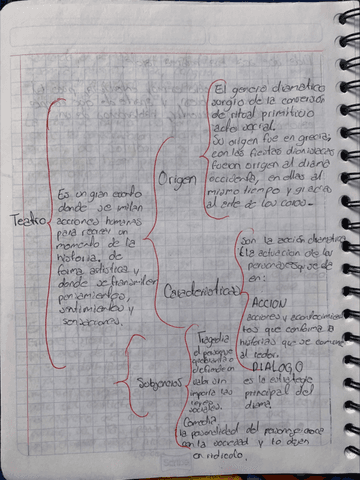 Teatro
Es un gran evento
donde se imitan
acciones humanas
para recrear un
momento de la
historia, de
forma artistica y
donde se transmiten
pensamientos,
sentimientos y
sensaciones.
Origen
El genero dramatico
surgio de la conversión
de ritual primitivo
acto social.
Su origen fue en grecia,
con las fiestas dionisiacas
fueron origen al drama
occidental, en ellas al
mismo tiempo y gracias
al arte de los coros.
Caracteristicas
son la acción dramatica
la actuación de los
personajes que se de
en:
ACCION
acciones y acontecimien
tos que conforma la
historias que se comunica
al lector.
DIALOGO
es la estrategia
principal del
drama.
Subgeneros
Tragedia
el personaje
defiende un
valor sin
importar las
sociales.
Comedia
la personalidad del personaje choca
con la sociedad y lo dejan
en ridiculo.